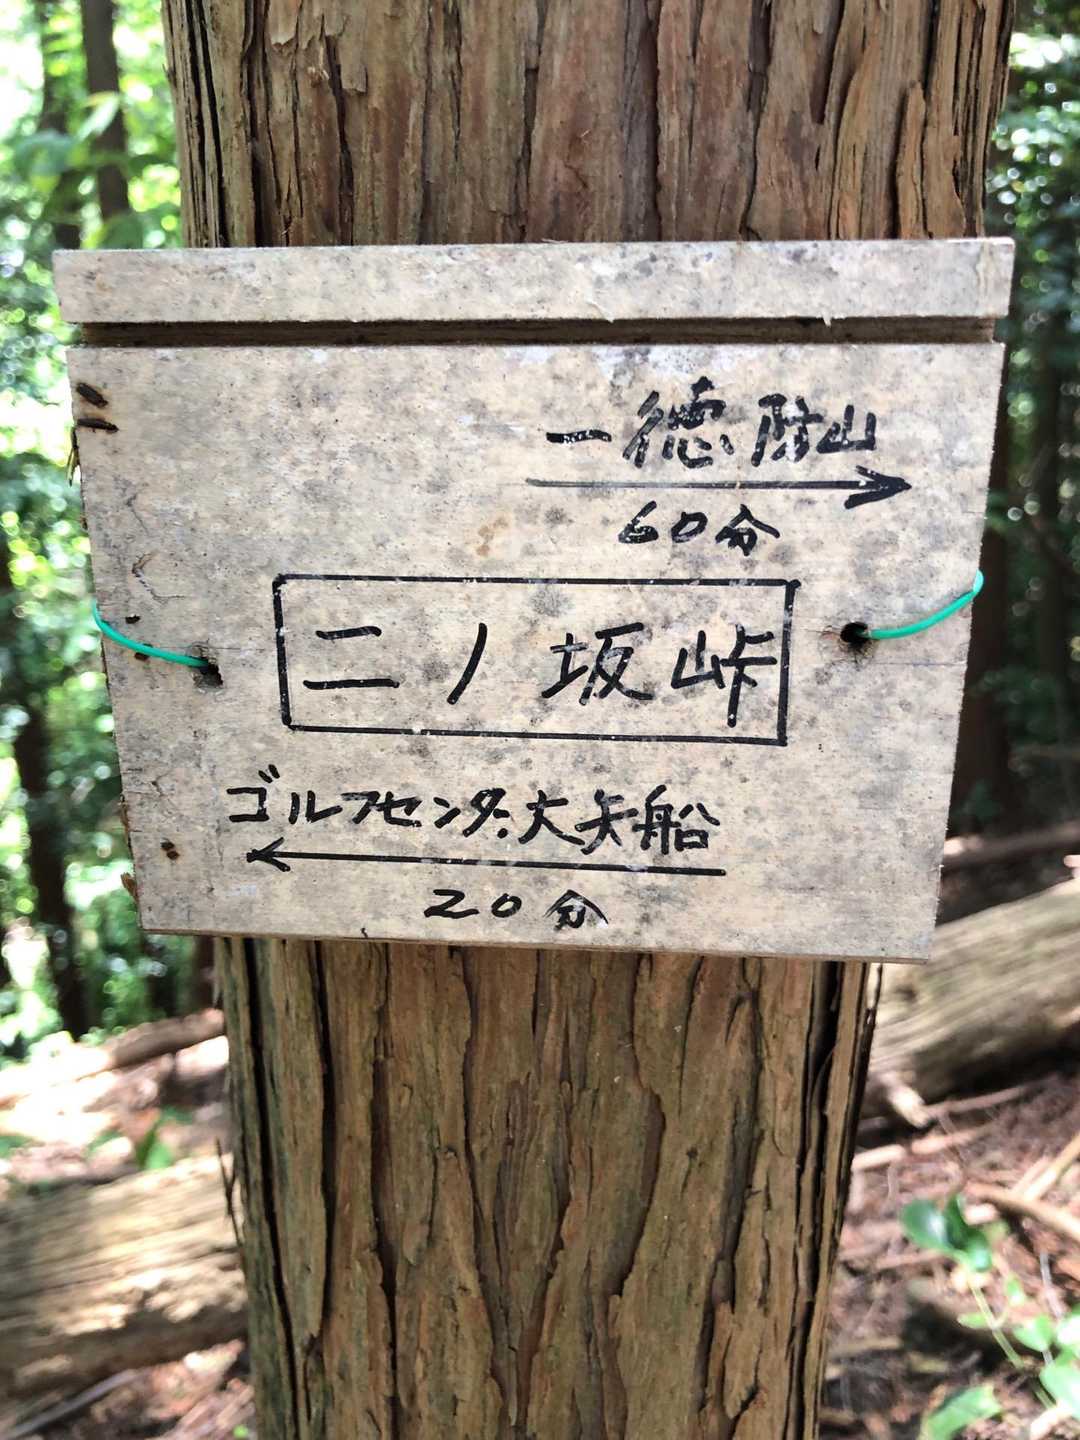 一徳防山
60分
二ノ坂峠
ゴルフセンター.大矢船
20分